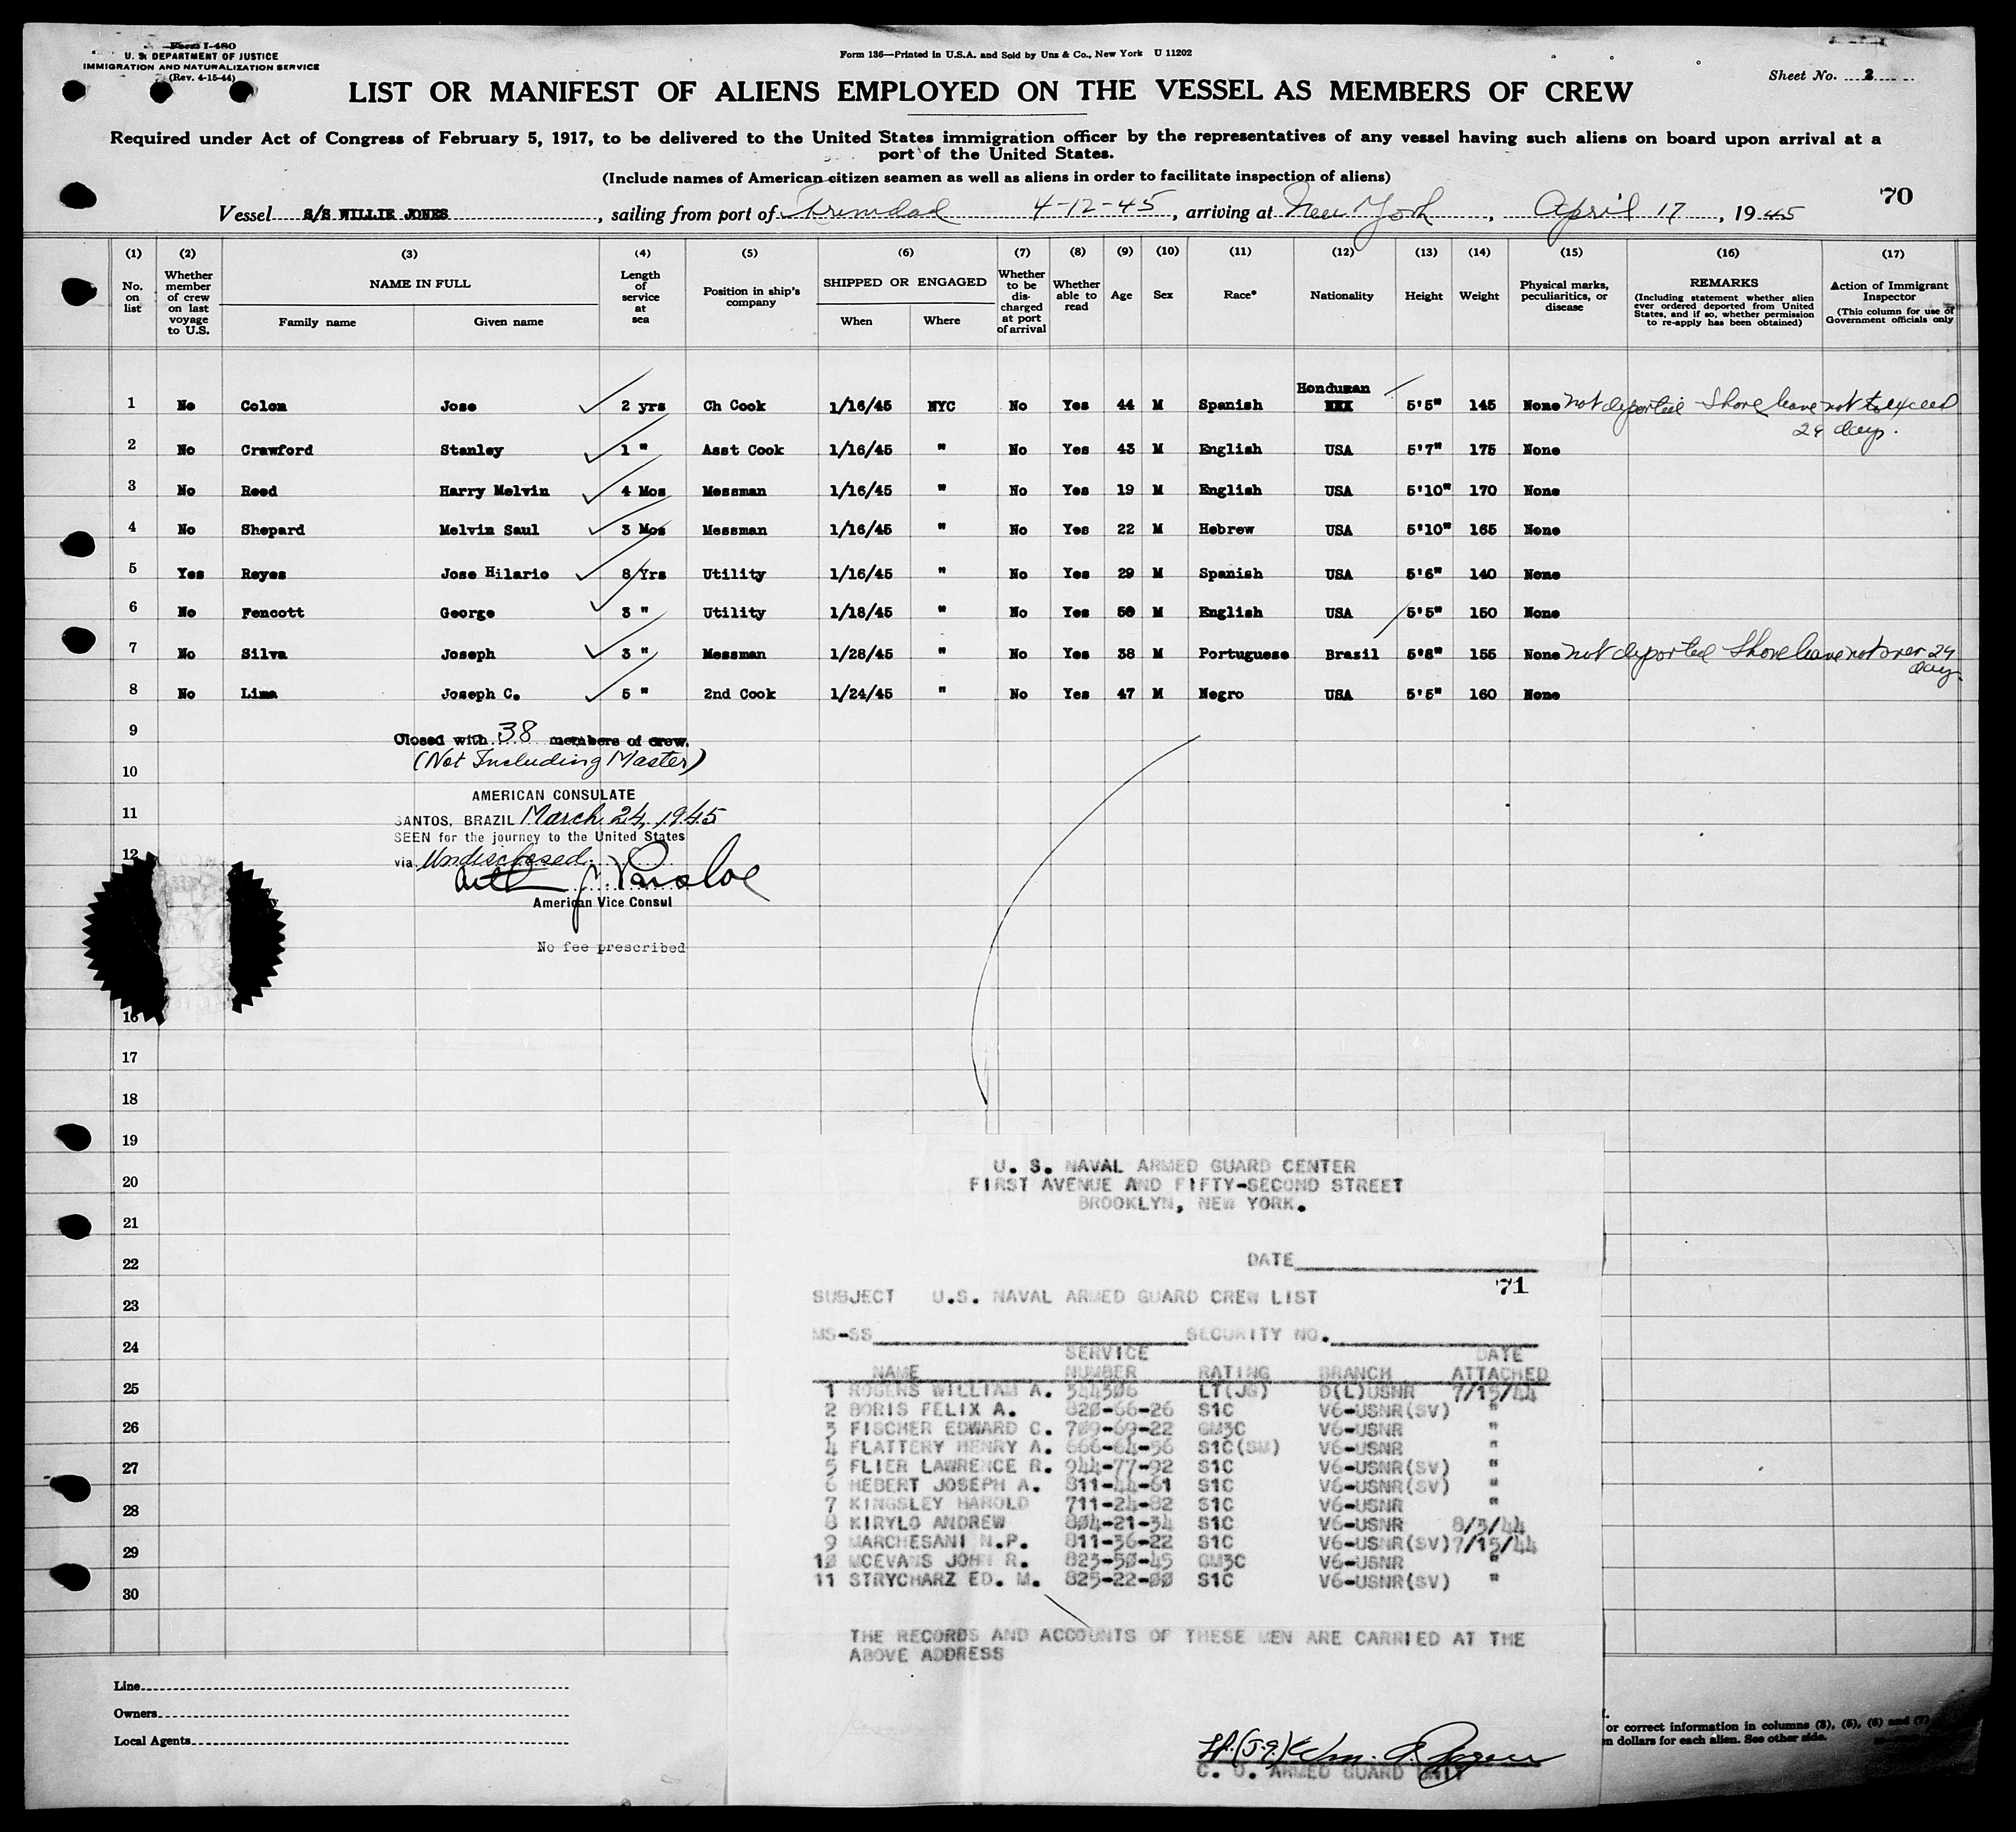 Form I-480
U. S. DEPARTMENT OF JUSTICE
IMMIGRATION AND NATURALIZATION SERVICE
(Rev. 4-15-44)
Form 136—Printed in U.S.A. and Sold by Unz & Co., New York U 11202
Sheet No. 2
LIST OR MANIFEST OF ALIENS EMPLOYED ON THE VESSEL AS MEMBERS OF CREW
Required under Act of Congress of February 5, 1917, to be delivered to the United States immigration officer by the representatives of any vessel having such aliens on board upon arrival at a
port of the United States.
(Include names of American citizen seamen as well as aliens in order to facilitate inspection of aliens)
70
Vessel S/S WILLIE JONES, sailing from port of Trinidad 4-12-45, arriving at New York, April 17, 1945
(1) No. on list
(2) Whether member of crew on last voyage to U.S.
(3) NAME IN FULL Family name Given name
(4) Length of service at sea
(5) Position in ship's company
(6) SHIPPED OR ENGAGED When Where
(7) Whether to be discharged at port of arrival
(8) Whether able to read
(9) Age
(10) Sex
(11) Race*
(12) Nationality
(13) Height
(14) Weight
(15) Physical marks, peculiarities, or disease
(16) REMARKS (Including statement whether alien ever ordered deported from United States, and if so, whether permission to re-apply has been obtained)
(17) Action of Immigrant Inspector (This column for use of Government officials only
Honduran
1 No Colon Jose 2 yrs Ch Cook 1/16/45 NYC No Yes 44 M Spanish XXX 5'5" 145 None not deported Shore leave not to exceed
29 days.
2 No Crawford Stanley 1 " Asst Cook 1/16/45 " No Yes 43 M English USA 5'7" 175 None
3 No Reed Harry Melvin 4 Mos Messman 1/16/45 " No Yes 19 M English USA 5'10" 170 None
4 No Shepard Melvin Saul 3 Mos Messman 1/16/45 " No Yes 22 M Hebrew USA 5'10" 165 None
5 Yes Reyes Jose Hilario 8 Yrs Utility 1/16/45 " No Yes 29 M Spanish USA 5'6" 140 None
6 No Fencott George 3 " Utility 1/18/45 " No Yes 50 M English USA 5'5" 150 None
7 No Silva Joseph 3 " Messman 1/28/45 " No Yes 38 M Portuguese Brazil 5'8" 155 None not deported Shore leave not over 29
days
8 No Lima Joseph C. 5 " 2nd Cook 1/24/45 " No Yes 47 M Negro USA 5'5" 160 None
9
Closed with 38 members of crew.
(Not Including Master)
10
AMERICAN CONSULATE
11
SANTOS, BRAZIL March 24, 1945
SEEN for the journey to the United States
12
via Undisclosed
American Vice Consul
No fee prescribed
16
17
18
19
20
21
22
23
24
25
26
27
28
29
30
U. S. NAVAL ARMED GUARD CENTER
FIRST AVENUE AND FIFTY-SECOND STREET
BROOKLYN, NEW YORK.
DATE
71
SUBJECT U.S. NAVAL ARMED GUARD CREW LIST
MS-SS SECURITY NO.
NAME SERVICE NUMBER RATING BRANCH DATE ATTACHED
1 ROGENS WILLIAM A. 344306 LT(JG) D(L)USNR 7/15/44
2 BORIS FELIX A. 820-66-26 S1C V6-USNR(SV) "
3 FISCHER EDWARD C. 709-69-22 GM3C V6-USNR "
4 FLATTERY HENRY A. 666-64-56 S1C(SM) V6-USNR "
5 FLIER LAWRENCE R. 944-77-92 S1C V6-USNR(SV) "
6 HEBERT JOSEPH A. 811-44-61 S1C V6-USNR(SV) "
7 KINGSLEY HAROLD 711-24-82 S1C V6-USNR "
8 KIRYLO ANDREW 804-21-34 S1C V6-USNR 8/3/44
9 MARCHESANI N.P. 811-36-22 S1C V6-USNR(SV) 7/15/44
10 MCEVANS JOHN R. 823-50-45 GM3C V6-USNR "
11 STRYCHARZ ED. M. 825-22-00 S1C V6-USNR(SV) "
THE RECORDS AND ACCOUNTS OF THESE MEN ARE CARRIED AT THE
ABOVE ADDRESS
Lt.(J.g.) Wm. A. Rogers
C. O. ARMED GUARD UNIT
Line
Owners
Local Agents
or correct information in columns (3), (5), (6) and (7)
n dollars for each alien. See other side.